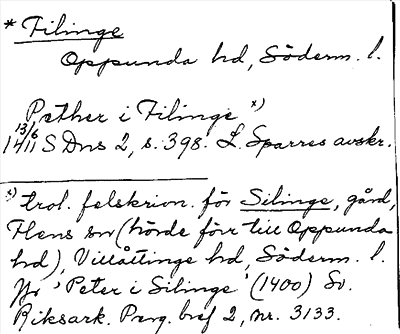 * Filinge
Oppunda hd, Söderm. l.
Pether i Filinge x)
13/6
1411 S Dns 2, s. 398. L. Sparres avskr.
x) trol. felskrivn. för Silinge, gård,
Flens sn (hörde förr till Oppunda
hd), Villåttinge hd, Söderm. l.
Jfr 'Peter i Silinge' (1400) Sv.
Riksark. Perg. bref 2, nr. 3133.